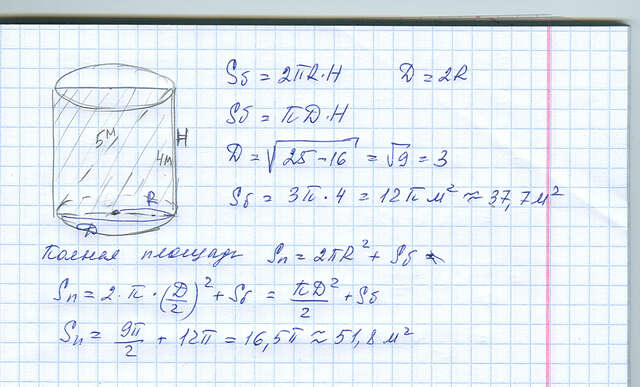 Sб = 2πR·H   D = 2R
Sб = πD·H
D = √(25-16) = √9 = 3
Sб = 3π·4 = 12π м² ≈ 37,7 м²
5м
H
4м
R
D
Полная площадь Sп = 2πR² + Sб
Sп = 2·π·(D/2)² + Sб = πD²/2 + Sб
Sп = 9π/2 + 12π = 16,5π ≈ 51,8 м²